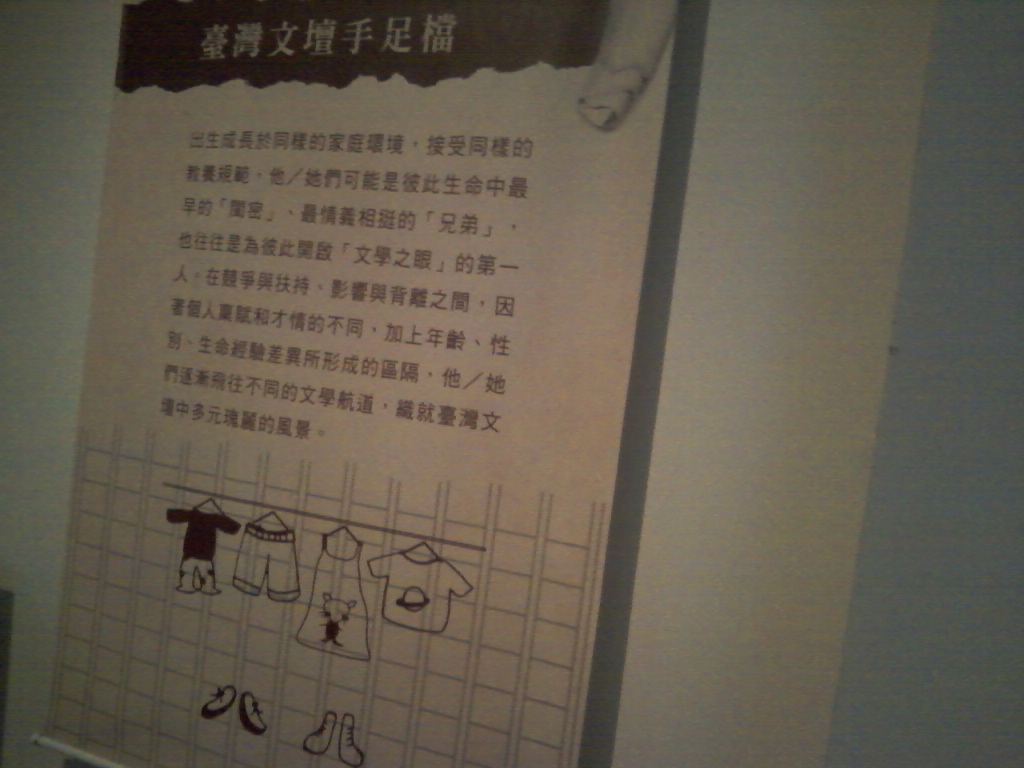 臺灣文壇手足檔
出生成長於同樣的家庭環境，接受同樣的
教養規範，他／她們可能是彼此生命中最
早的「閨密」、最情義相挺的「兄弟」，
也往往是為彼此開啟「文學之眼」的第一
人。在競爭與扶持、影響與背離之間，因
著個人稟賦和才情的不同，加上年齡、性
別、生命經驗差異所形成的區隔，他／她
們逐漸飛往不同的文學航道，織就臺灣文
壇中多元瑰麗的風景。